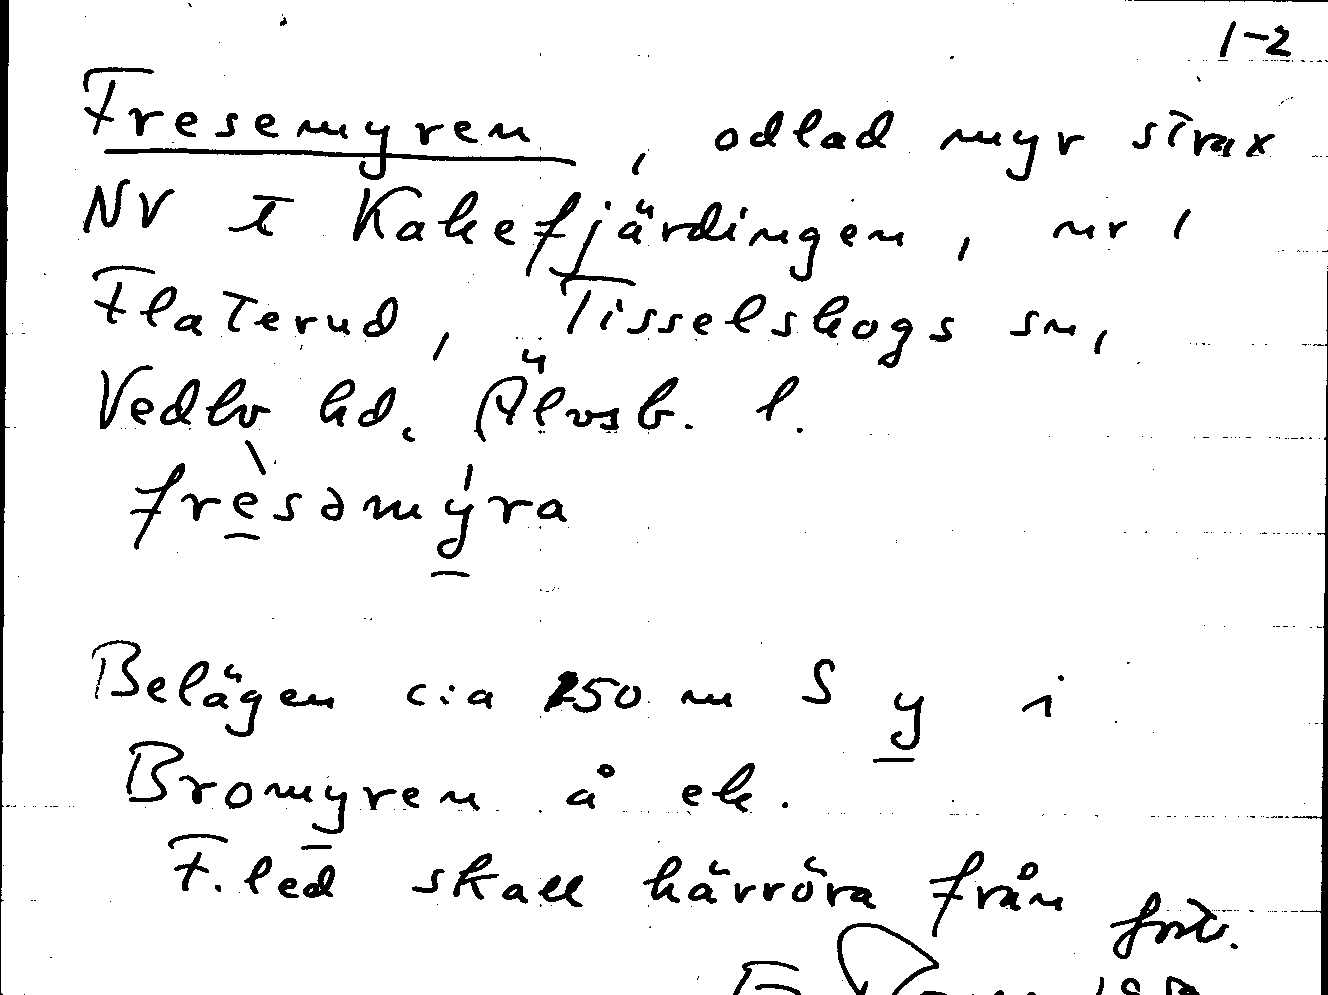 1-2
Fresemyren, odlad myr strax
NV t Kakefjärdingen, nr 1
Flaterud, Tisselskogs sn,
Vedbo hd. Älvsb. l.
frèsəmýra
Belägen c:a 250 m S y i
Bromyren å ek.
F. led skall härröra från
fort.